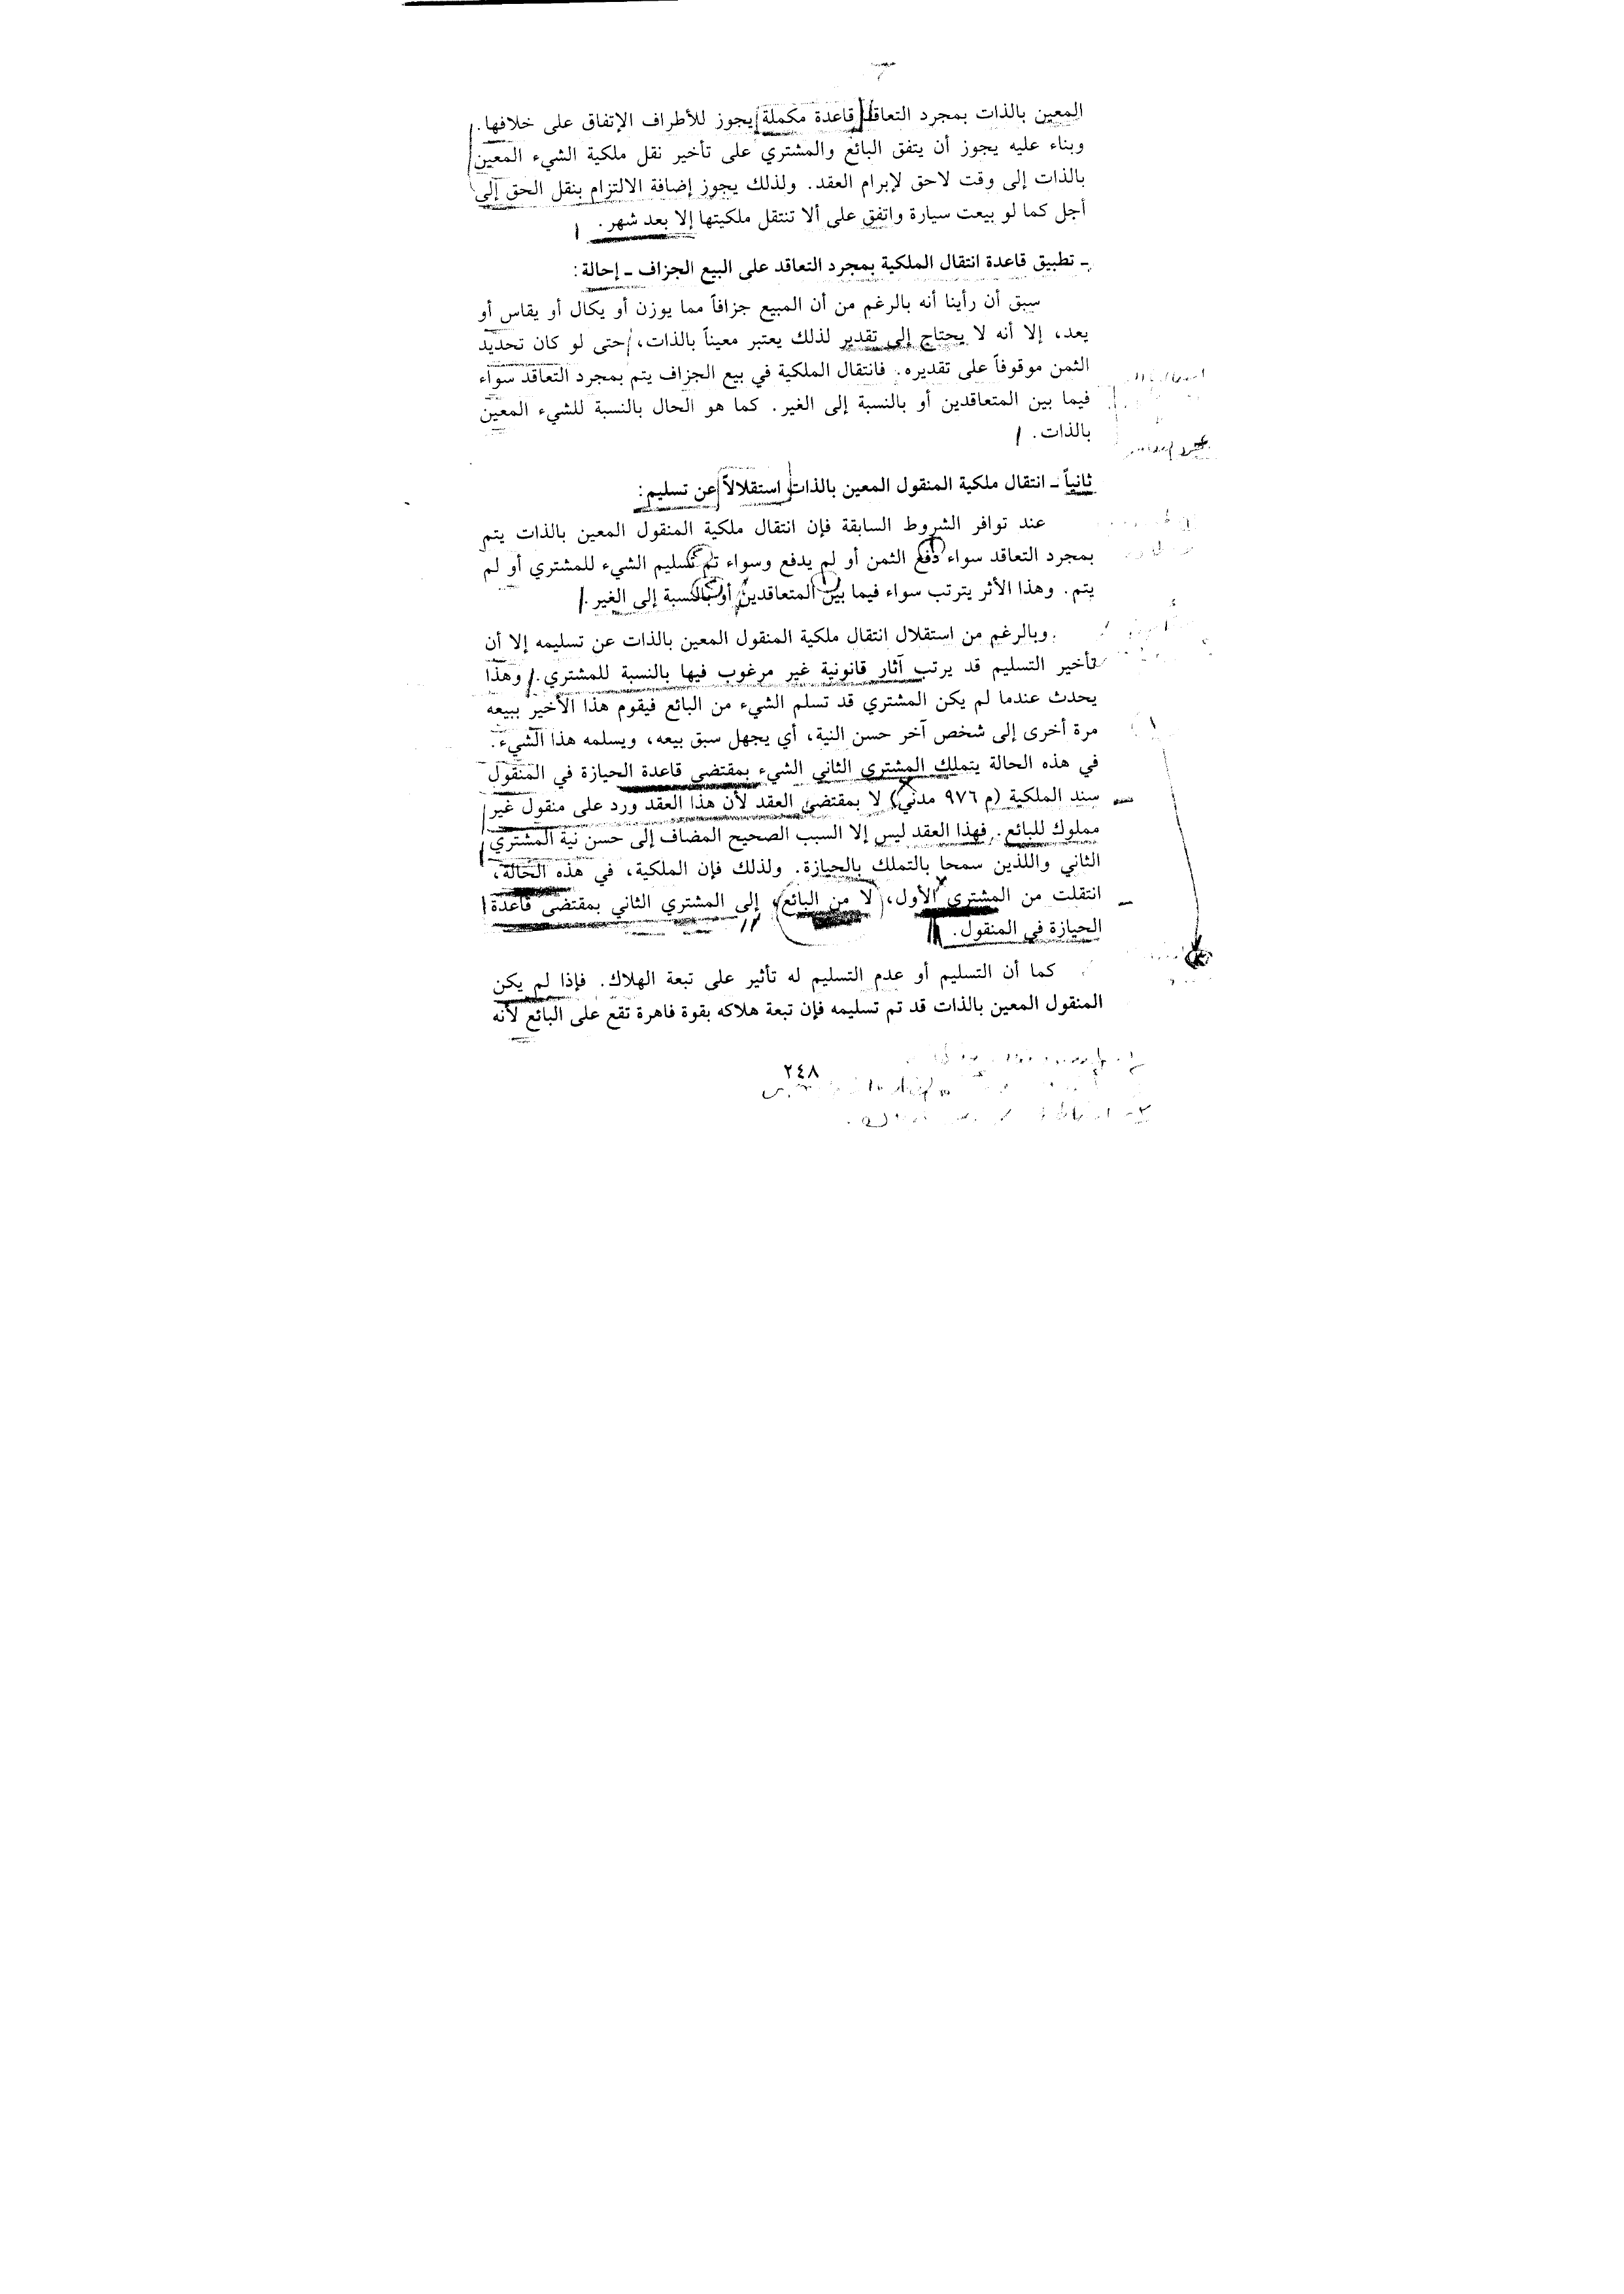 المعين بالذات بمجرد التعاقد قاعدة مكملة يجوز للأطراف الإتفاق على خلافها.
وبناء عليه يجوز أن يتفق البائع والمشتري على تأخير نقل ملكية الشيء المعين
بالذات إلى وقت لاحق لإبرام العقد. ولذلك يجوز إضافة الالتزام بنقل الحق إلى
أجل كما لو بيعت سيارة واتفق على ألا تنتقل ملكيتها إلا بعد شهر.
ـ تطبيق قاعدة انتقال الملكية بمجرد التعاقد على البيع الجزاف ـ إحالة:
سبق أن رأينا أنه بالرغم من أن المبيع جزافاً مما يوزن أو يكال أو يقاس أو
يعد، إلا أنه لا يحتاج إلى تقدير لذلك يعتبر معيناً بالذات، حتى لو كان تحديد
الثمن موقوفاً على تقديره. فانتقال الملكية في بيع الجزاف يتم بمجرد التعاقد سواء
فيما بين المتعاقدين أو بالنسبة إلى الغير. كما هو الحال بالنسبة للشيء المعين
بالذات.
ثانياً ـ انتقال ملكية المنقول المعين بالذات استقلالاً عن تسليم:
عند توافر الشروط السابقة فإن انتقال ملكية المنقول المعين بالذات يتم
بمجرد التعاقد سواء دفع الثمن أو لم يدفع وسواء تم تسليم الشيء للمشتري أو لم
يتم. وهذا الأثر يترتب سواء فيما بين المتعاقدين أو بالنسبة إلى الغير.
وبالرغم من استقلال انتقال ملكية المنقول المعين بالذات عن تسليمه إلا أن
تأخير التسليم قد يرتب آثار قانونية غير مرغوب فيها بالنسبة للمشتري. وهذا
يحدث عندما لم يكن المشتري قد تسلم الشيء من البائع فيقوم هذا الأخير ببيعه
مرة أخرى إلى شخص آخر حسن النية، أي يجهل سبق بيعه، ويسلمه هذا الشيء.
في هذه الحالة يتملك المشتري الثاني الشيء بمقتضى قاعدة الحيازة في المنقول
سند الملكية (م ٩٧٦ مدني) لا بمقتضى العقد لأن هذا العقد ورد على منقول غير
مملوك للبائع. فهذا العقد ليس إلا السبب الصحيح المضاف إلى حسن نية المشتري
الثاني واللذين سمحا بالتملك بالحيازة. ولذلك فإن الملكية، في هذه الحالة،
انتقلت من المشتري الأول، لا من البائع، إلى المشتري الثاني بمقتضى قاعدة
الحيازة في المنقول.
كما أن التسليم أو عدم التسليم له تأثير على تبعة الهلاك. فإذا لم يكن
المنقول المعين بالذات قد تم تسليمه فإن تبعة هلاكه بقوة قاهرة تقع على البائع لأنه
٢٤٨